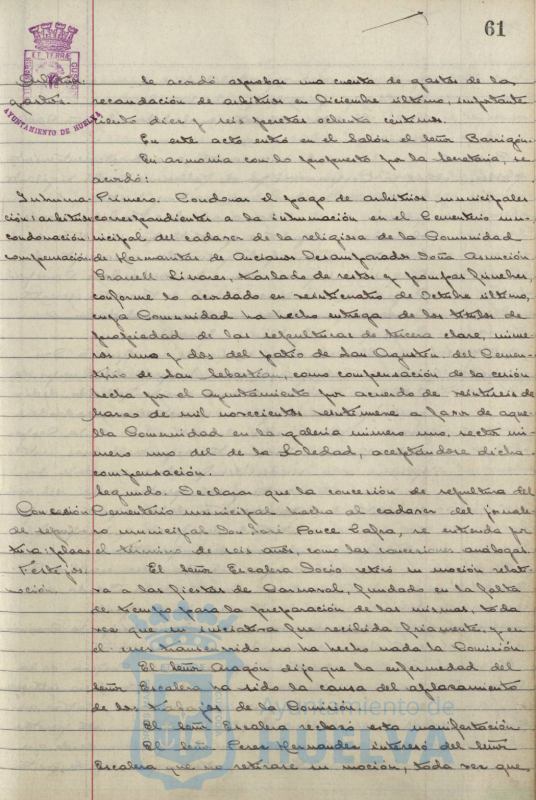 61
ET TERRÆ CUSTODIA
AYUNTAMIENTO DE HUELVA
Arbitrios: Se acordó aprobar una cuenta de gastos de la
gastos. recaudación de arbitrios en Diciembre último, importante
ciento diez y seis pesetas ochenta céntimos.
En este acto entró en el Salón el Señor Barrigón.
En armonía con lo propuesto por la Secretaría, se
acordó:
Inhuma- Primero. Condonar el pago de arbitrios municipales
ción: arbitrios correspondientes a la inhumación en el Cementerio mu-
condonación nicipal del cadaver de la religiosa de la Comunidad
compensación de Hermanitas de Ancianos Desamparados Doña Asunción
Granell Linares, traslado de restos y pompas fúnebres,
conforme lo acordado en veinticuatro de Octubre último,
cuya Comunidad ha hecho entrega de los títulos de
propiedad de las sepulturas de tercera clase, núme-
ros uno y dos del patio de San Agustín del Cemen-
terio de San Sebastián, como compensación de la cesión
hecha por el Ayuntamiento por acuerdo de veintiseis de
de mil novecientos veintinueve a favor de aque-
lla Comunidad en la galeria número uno, sector nú-
mero uno del de la Soledad, aceptándose dicha
compensación.
Segundo. Declarar que la concesión de sepultura del
Concesión Cementerio municipal hecha al cadaver del jornale-
de sepul- ro municipal Don José Ponce Lafra, se entienda por
tura: plazo el término de seis años, como las concesiones análogas.
Festejos: El Señor Escalera Docio retiró su moción relati-
moción. va a las fiestas de Carnaval, fundado en la falta
de tiempo para la preparación de las mismas, toda
vez que su iniciativa fue recibida friamente, y en
el mes transcurrido no ha hecho nada la Comisión.
El Señor Aragón dijo que la enfermedad del
Señor Escalera ha sido la causa del aplazamiento
de los trabajos de la Comisión.
El Señor Escalera rechazó esta manifestación.
El Señor Perez Hernandez interesó del Señor
Escalera que no retirase su moción, toda vez que
Ayuntamiento de
HUELVA